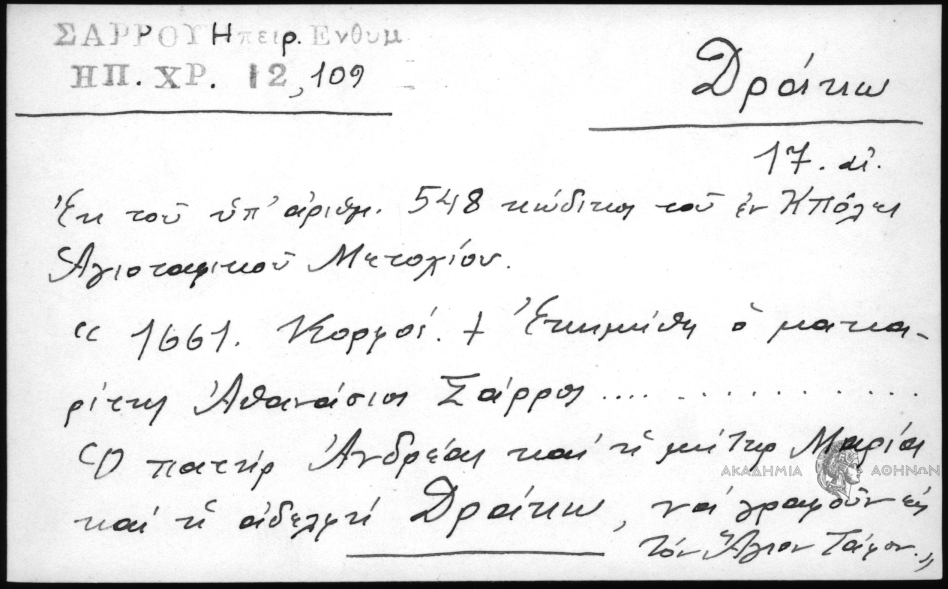 ΣΑΡΡΟΥ Ηπειρ. Ενθυμ
ΗΠ. ΧΡ. 12, 109
Δράκω
17. αἰ.
Ἐκ τοῦ ὑπ' ἀριθμ. 548 κώδικος τοῦ ἐν Κπόλει
Ἁγιοταφικοῦ Μετοχίου.
"1661. Κορμοί. + Ἐκημήθη ὁ μακα-
ρίτης Ἀθανάσιος Σάρρος ..............
Ὁ πατήρ Ἀνδρέας καί ἡ μήτηρ Μαρία
ΑΚΑΔΗΜΙΑ ΑΘΗΝΩΝ
καί ἡ ἀδελφή Δράκω, νά γραφοῦν εἰς
τόν Ἅγιον Τάφον."